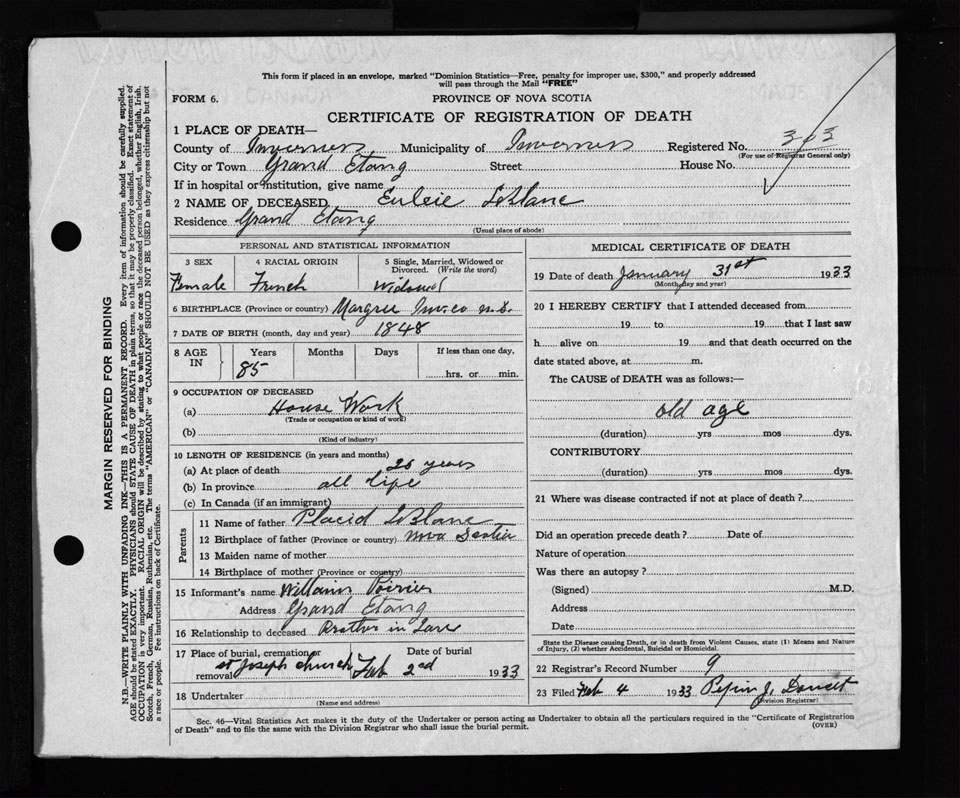 This form if placed in an envelope, marked "Dominion Statistics—Free, penalty for improper use, $300," and properly addressed
will pass through the Mail "FREE"
FORM 6.
PROVINCE OF NOVA SCOTIA
CERTIFICATE OF REGISTRATION OF DEATH
1 PLACE OF DEATH—
County of Inverness Municipality of Inverness Registered No. 303
(For use of Registrar General only)
City or Town Grand Etang Street House No.
If in hospital or institution, give name
2 NAME OF DECEASED LeBlanc
Residence Grand Etang
(Usual place of abode)
PERSONAL AND STATISTICAL INFORMATION
3 SEX 4 RACIAL ORIGIN 5 Single, Married, Widowed or Divorced. (Write the word)
Female French Widowed
6 BIRTHPLACE (Province or country) Margree Inv. co n.s.
7 DATE OF BIRTH (month, day and year) 1848
8 AGE IN Years Months Days If less than one day,
85 hrs. or min.
9 OCCUPATION OF DECEASED
(a) House Work
(Trade or occupation or kind of work)
(b)
(Kind of industry)
10 LENGTH OF RESIDENCE (in years and months)
(a) At place of death years
(b) In province all life
(c) In Canada (if an immigrant)
Parents
11 Name of father Placid LeBlanc
12 Birthplace of father (Province or country) Nova Scotia
13 Maiden name of mother
14 Birthplace of mother (Province or country)
15 Informant's name William Poirier
Address Grand Etang
16 Relationship to deceased in Law
17 Place of burial, cremation or removal Date of burial
st Joseph church Feb 2nd 1933
18 Undertaker
(Name and address)
MEDICAL CERTIFICATE OF DEATH
19 Date of death January 31st 1933
(Month, day and year)
20 I HEREBY CERTIFY that I attended deceased from
19 to 19 that I last saw
h alive on 19 and that death occurred on the
date stated above, at m.
The CAUSE of DEATH was as follows:—
old age
(duration) yrs mos dys.
CONTRIBUTORY
(duration) yrs mos dys.
21 Where was disease contracted if not at place of death?
Did an operation precede death? Date of
Nature of operation
Was there an autopsy?
(Signed) M.D.
Address
Date
State the Disease causing Death, or in death from Violent Causes, state (1) Means and Nature
of Injury, (2) whether Accidental, Suicidal or Homicidal.
22 Registrar's Record Number 9
23 Filed Feb 4 1933 Pepin J. Doucet
(Division Registrar)
Sec. 46—Vital Statistics Act makes it the duty of the Undertaker or person acting as Undertaker to obtain all the particulars required in the "Certificate of Registration
of Death" and to file the same with the Division Registrar who shall issue the burial permit.
(OVER)
MARGIN RESERVED FOR BINDING
N.B.—WRITE PLAINLY WITH UNFADING INK—THIS IS A PERMANENT RECORD. Every item of information should be carefully supplied.
AGE should be stated EXACTLY. PHYSICIANS should STATE CAUSE OF DEATH in plain terms, so that it may be properly classified. Exact statement of
OCCUPATION is very important. RACIAL ORIGIN will be described by stating to what people or race the deceased person belonged, whether English, Irish,
Scotch, French, German, Russian, Ruthenian, etc. The terms "AMERICAN" or "CANADIAN" SHOULD NOT BE USED as they express citizenship but not
a race or people. Fee instructions on back of Certificate.